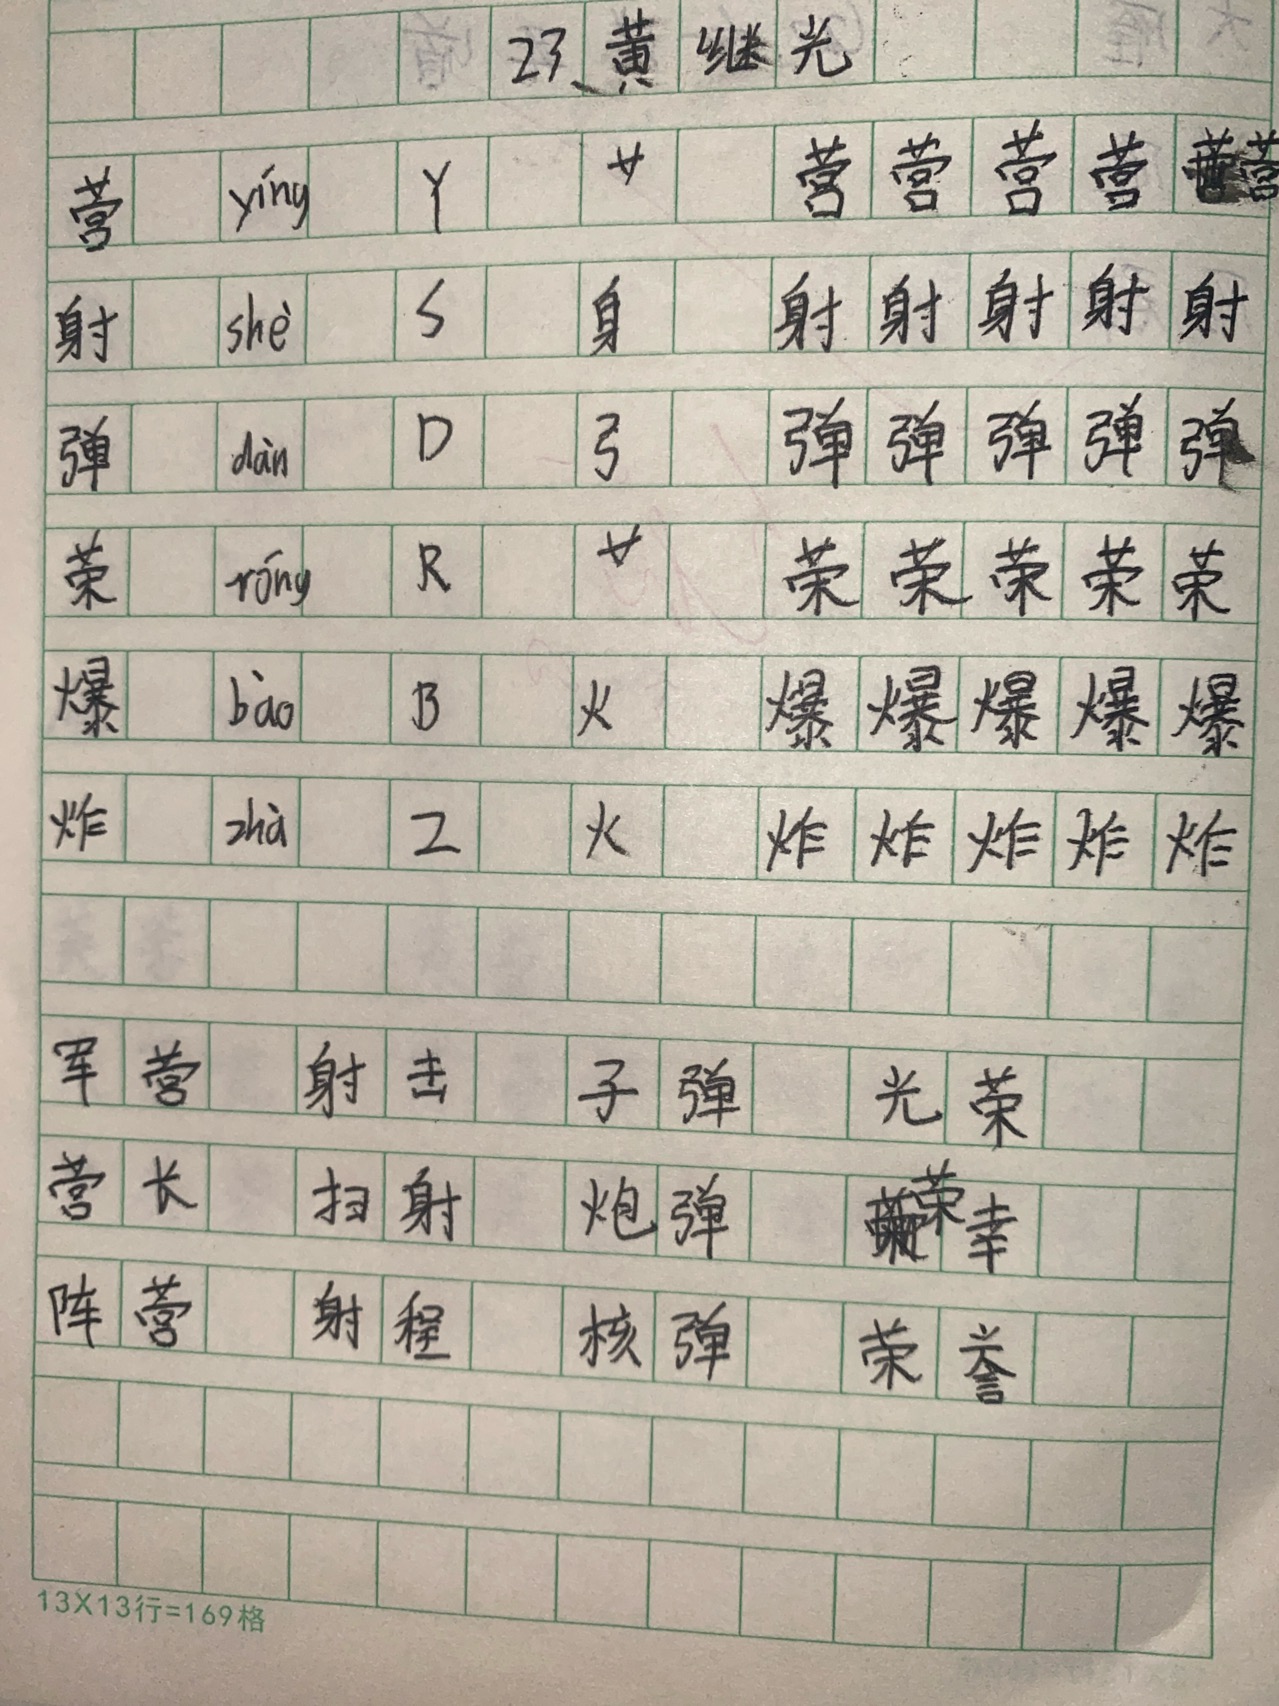 23、黄继光
营 yíng Y 艹 营 营 营 营 营
射 shè S 身 射 射 射 射 射
弹 dàn D 弓 弹 弹 弹 弹 弹
荣 róng R 艹 荣 荣 荣 荣 荣
爆 bào B 火 爆 爆 爆 爆 爆
炸 zhà Z 火 炸 炸 炸 炸 炸
军营 射击 子弹 光荣
营长 扫射 炮弹 荣幸
阵营 射程 核弹 荣誉
13X13行=169格